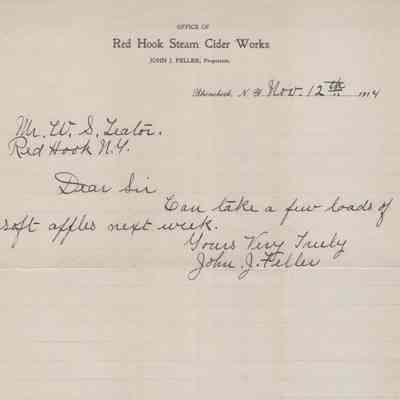 OFFICE OF
Red Hook Steam Cider Works
JOHN J. FELLER, Proprietor.
Rhinebeck, N. Y. Nov. 12th 1914
Mr. W. S. Teator.
Red Hook N.Y.
Dear Sir
Can take a few loads of
soft apples next week.
Yours Very Truly
John. J. Feller